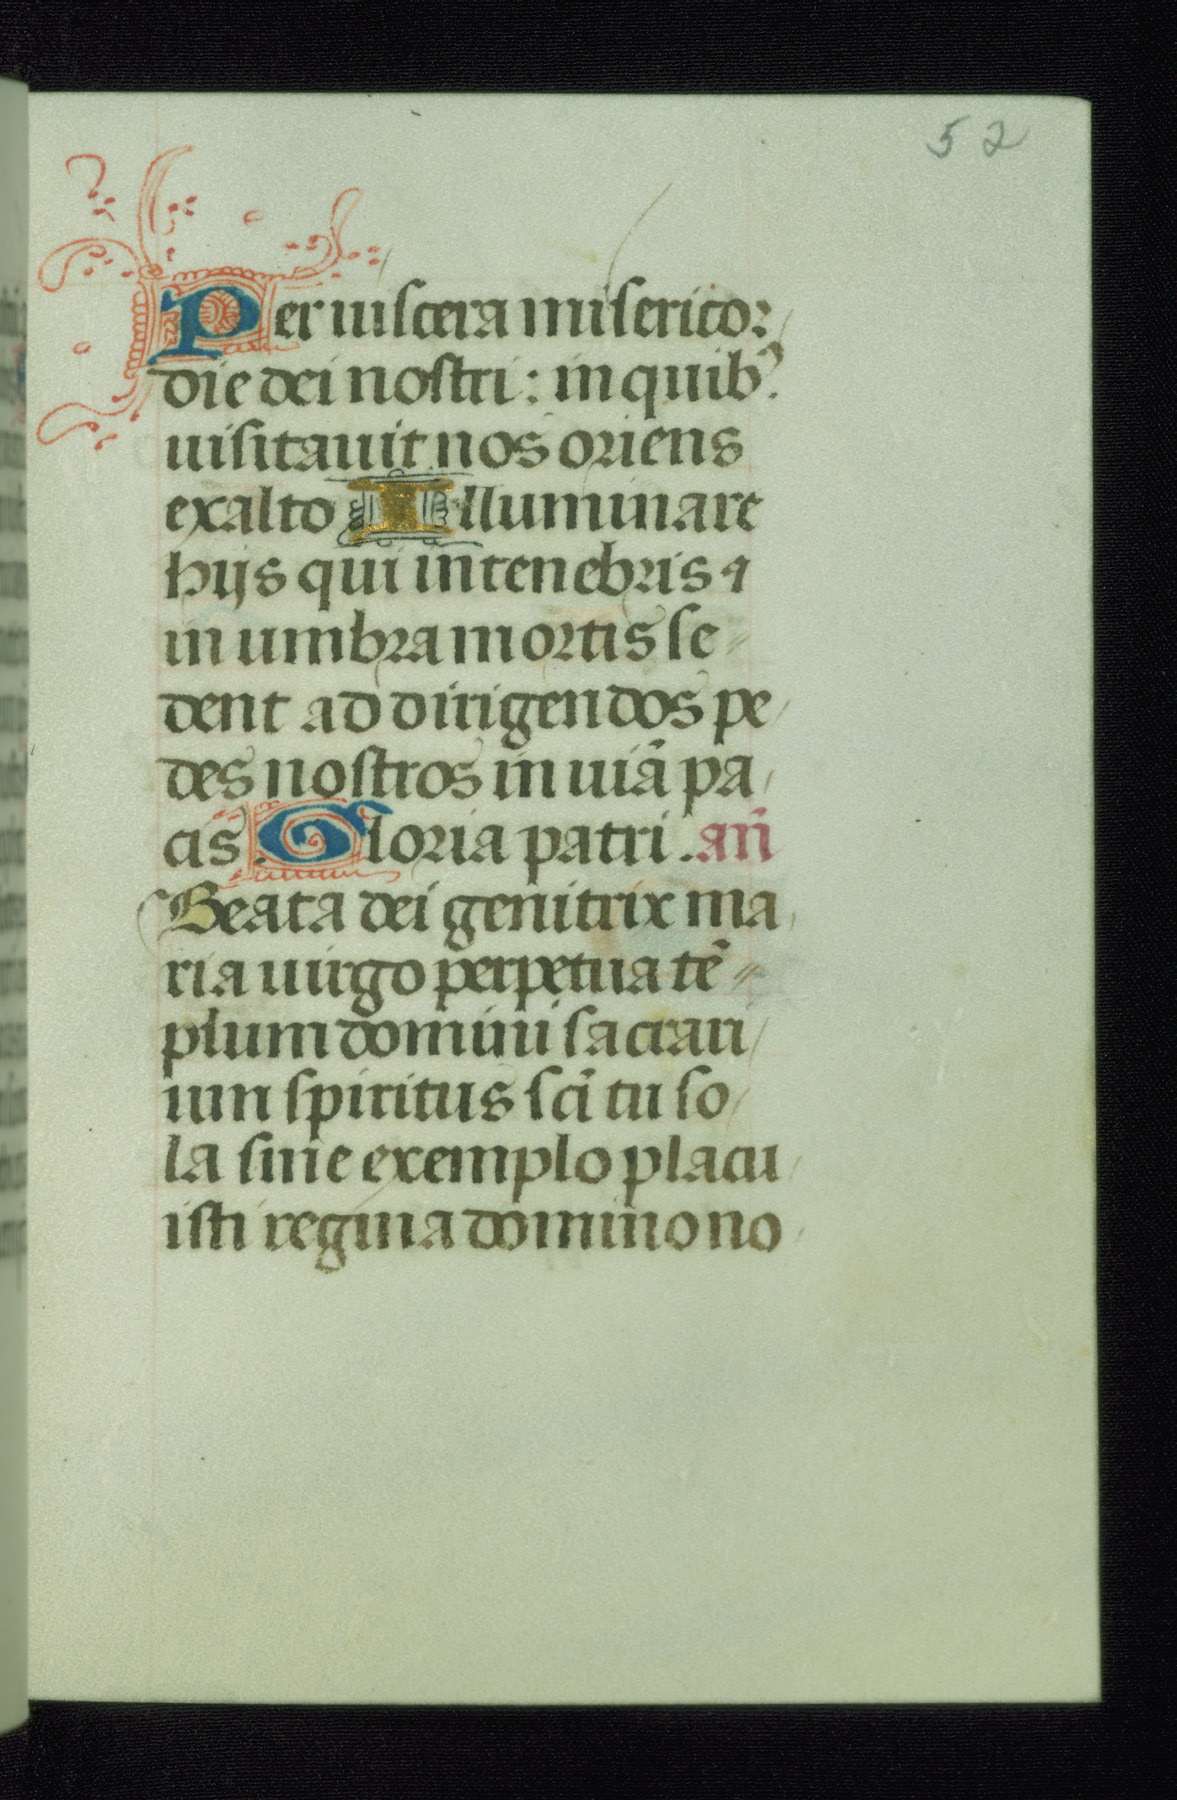 52
Per uiscera miserico2
die dei nostri : in quibꝰ.
uisitauit nos oriens
exalto Illuminare
hijs qui in tenebris ⁊
in umbra mortis se
dent ad dirigendos pe
des nostros in uiā pa
cis Gloria patri . an̄
Beata dei genitrix ma
ria uirgo perpetua tē
plum domini sacrari
um spiritus sc̄i tu so
la sine exemplo placu
isti regina domino no